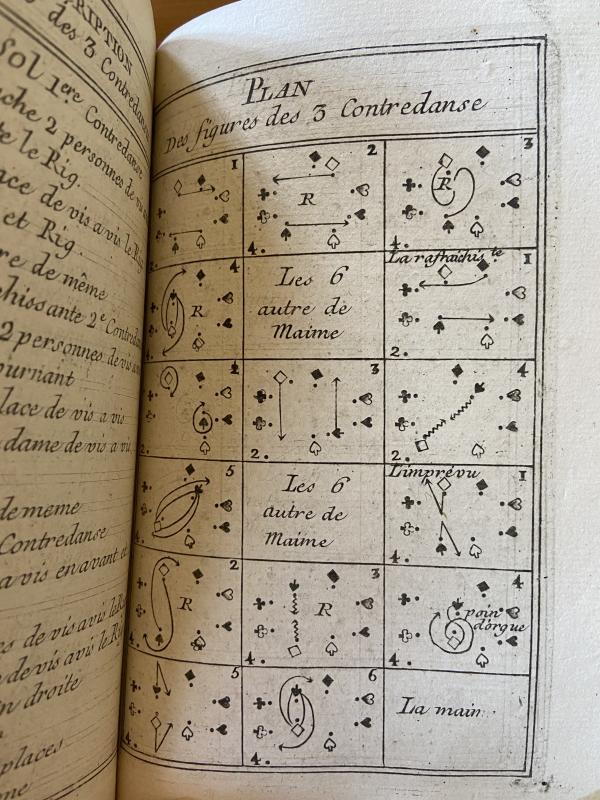 RIPTION
des 3 Contredanse
sol 1ere Contredanse
che 2 personnes de vis
te le Rig.
ace de vis a vis le Rig
et Rig.
re de même
chissante 2e Contred
2 personnes de vis
ournant
lace de vis a vis
dame de vis a vi
de meme
Contredanse
a vis en avant et
s de vis a vis le R
de vis a vis le Rig
n droite
places
PLAN
Des figures des 3 Contredanse
1
2
R
4.
3
R
4.
4
R
4.
Les 6
autre de
Maime
La rafraichis te
1
2.
2
2.
3
2.
4
2.
5
Les 6
autre de
Maime
L'imprévu
1
4.
2
R
4.
3
R
4.
4
poin
d'orgue
4.
5
4.
6
4.
La main